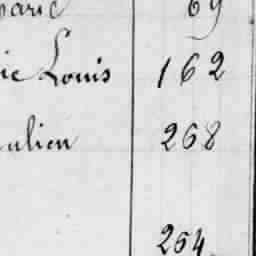 parie 69
ie Louis 162
ulien 268
264